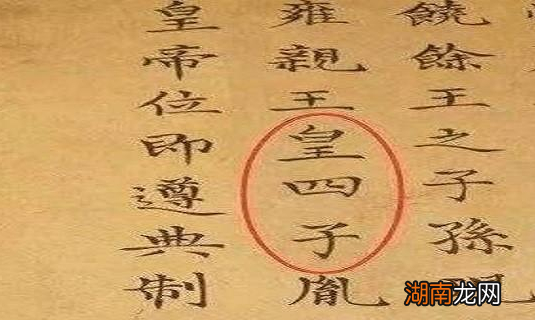 饒餘王之子孫
雍親王皇四子胤
皇帝位即遵典制
湖南龙网